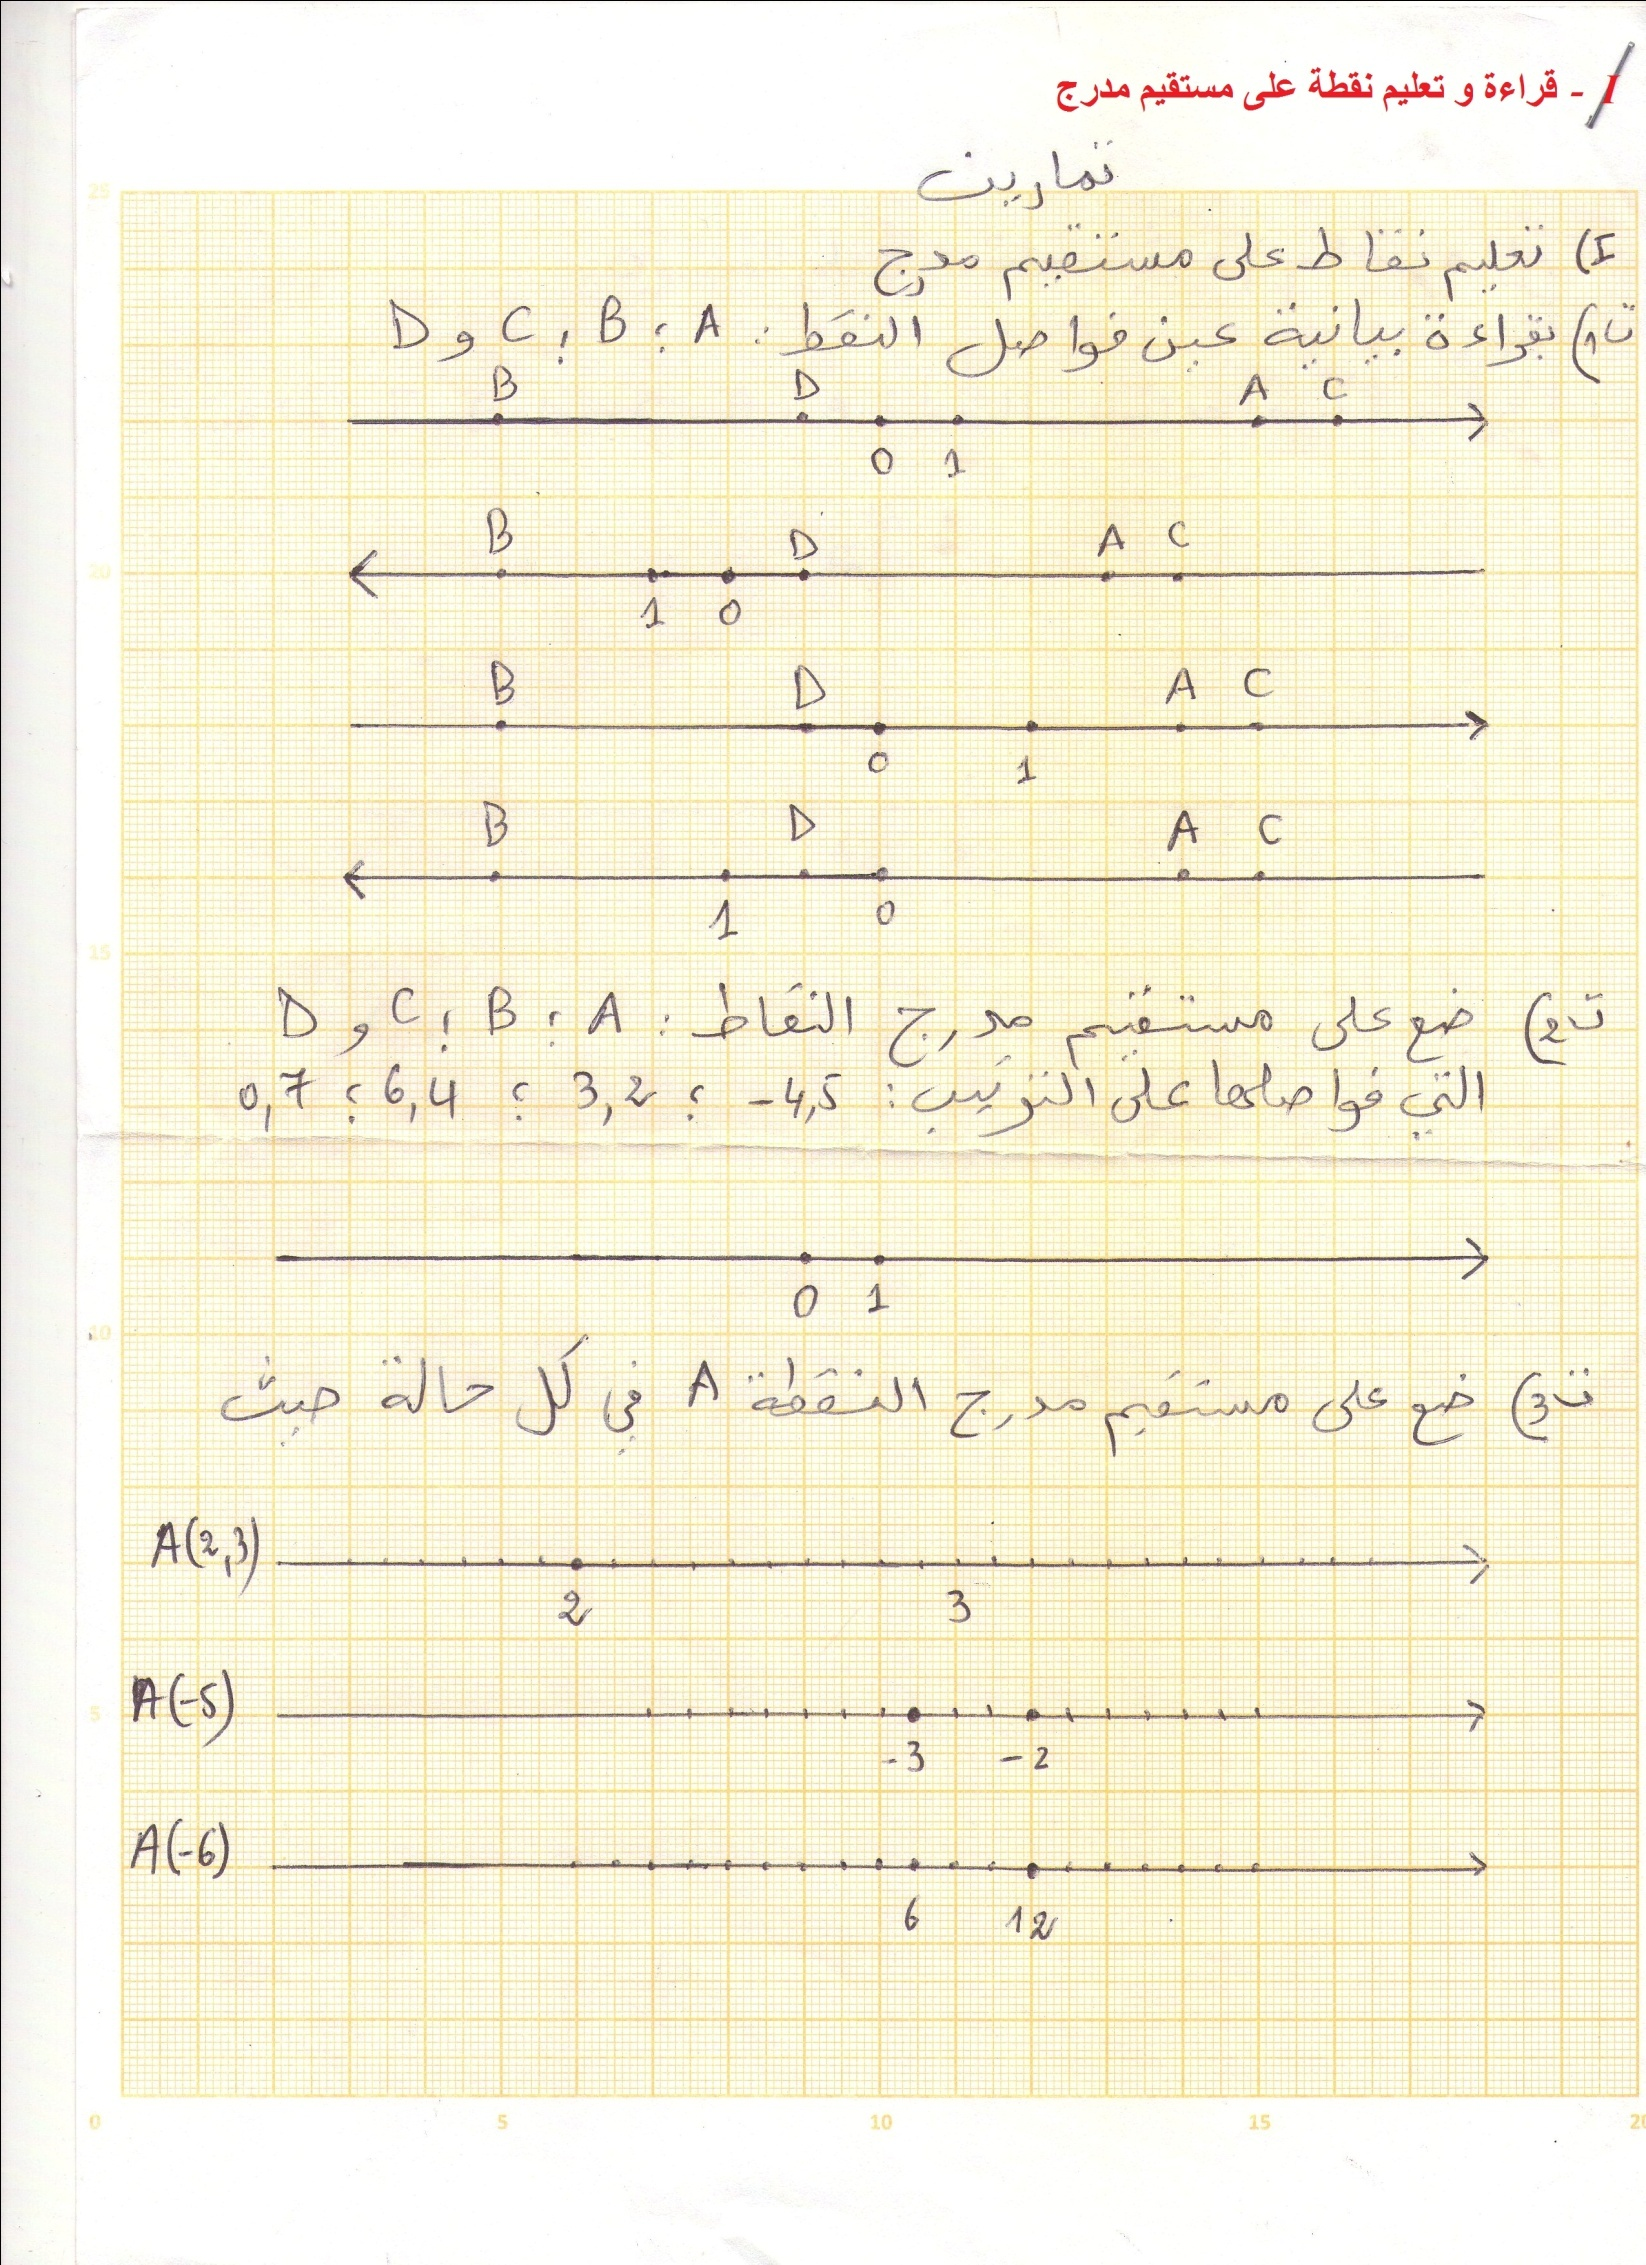 I - قراءة و تعليم نقطة على مستقيم مدرج
تمارين
I) تعليم نقاط على مستقيم مدرج
ت1) بقراءة بيانية عين فواصل النقط: A ؛ B ؛ C و D
B D A C
0 1
25
B D A C
20
1 0
B D A C
0 1
B D A C
1 0
15
ت2) ضع على مستقيم مدرج النقاط: A ؛ B ؛ C و D
التي فواصلها على الترتيب: -4,5 ؛ 3,2 ؛ 6,4 ؛ 0,7
0 1
10
ت3) ضع على مستقيم مدرج النقطة A في كل حالة حيث
A(2,3)
2 3
A(-5)
5
-3 -2
A(-6)
6 12
0 5 10 15 20